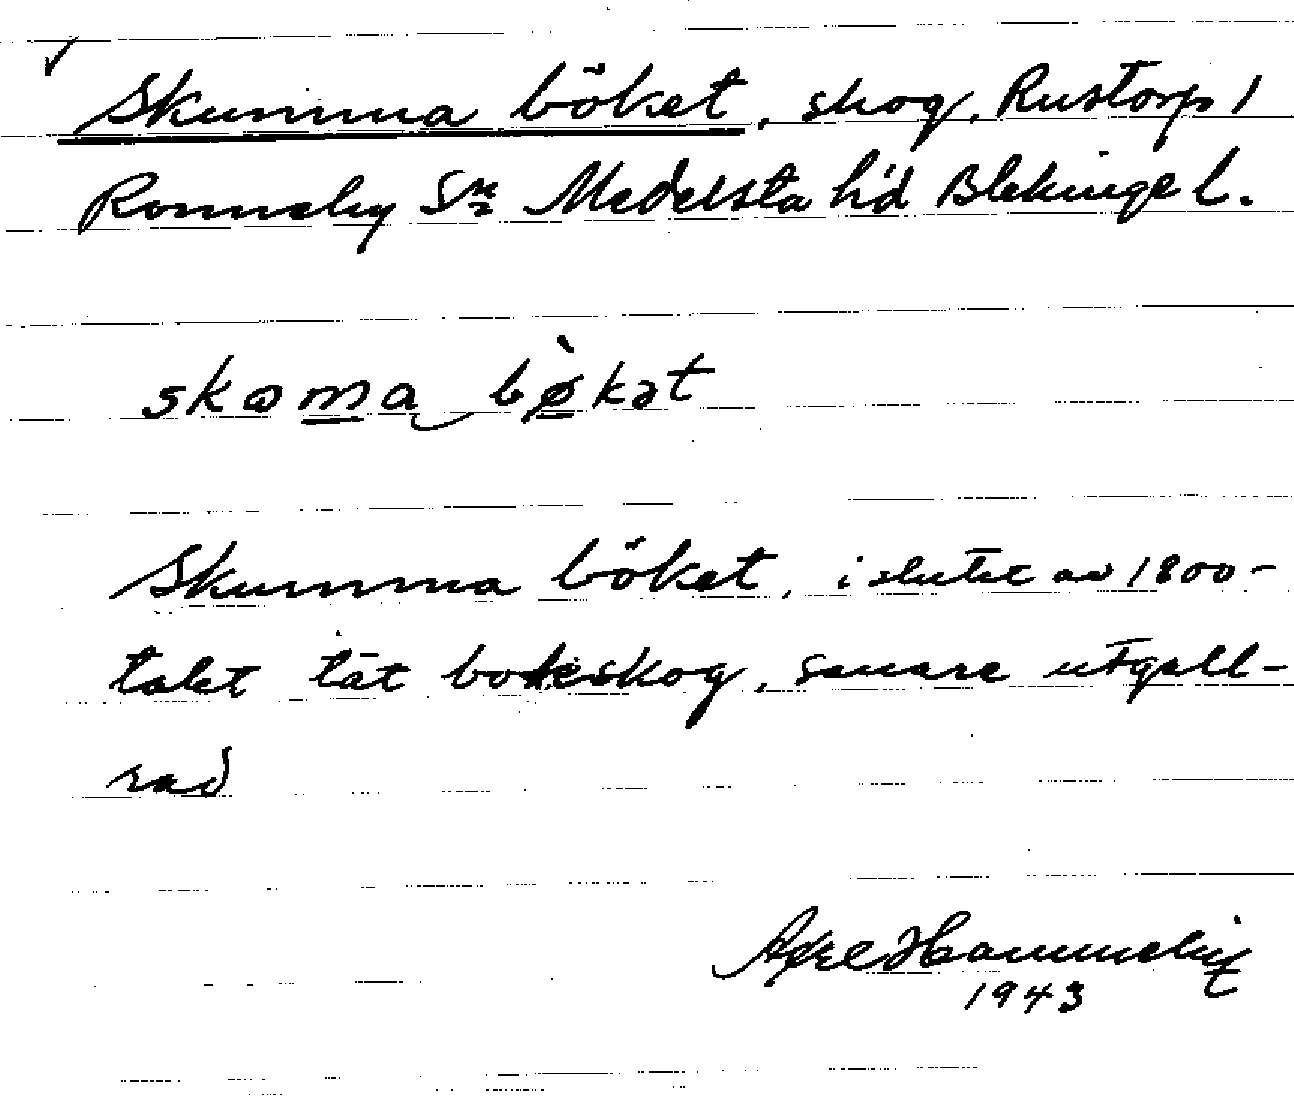 Skumma böket, skog, Rustorp 1
Ronneby Sn Medelsta hd Blekinge l.
skoma bø̀kət
Skumma böket, i slutet av 1800-
talet tät bokskog, senare utgall-
rad
Axel Hammelin
1943